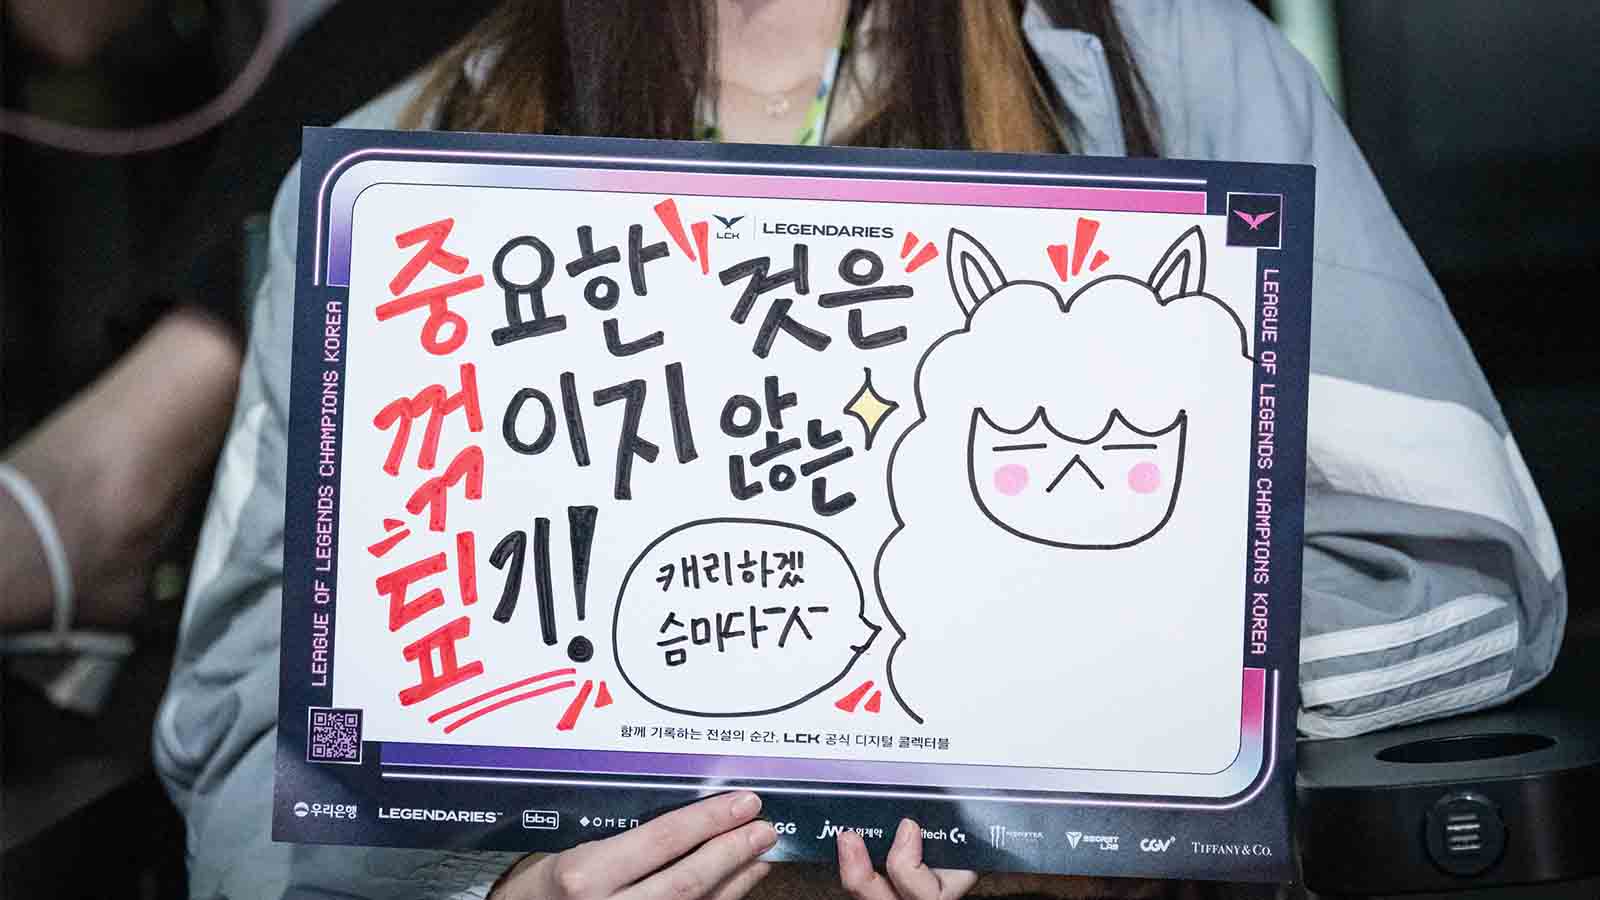 LCK | LEGENDARIES
중요한 것은
꺾이지 않는
딮기!
캐리하겠
슴미다-ㅅ-
함께 기록하는 전설의 순간, LCK 공식 디지털 콜렉터블
LEAGUE OF LEGENDS CHAMPIONS KOREA
LEAGUE OF LEGENDS CHAMPIONS KOREA
우리은행 LEGENDARIES™ bbq OMEN GG JW 중외제약 itech G MONSTER SECRETLAB CGV TIFFANY & CO.